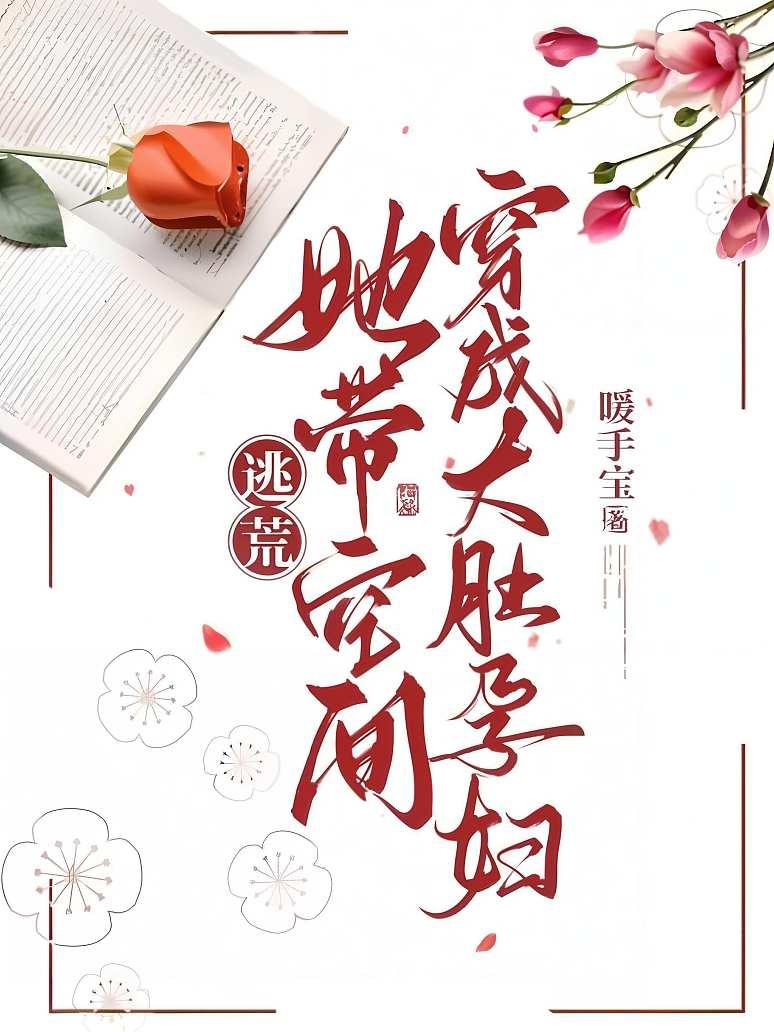 穿成大肚孕妇
她带空间
逃荒
暖手宝著